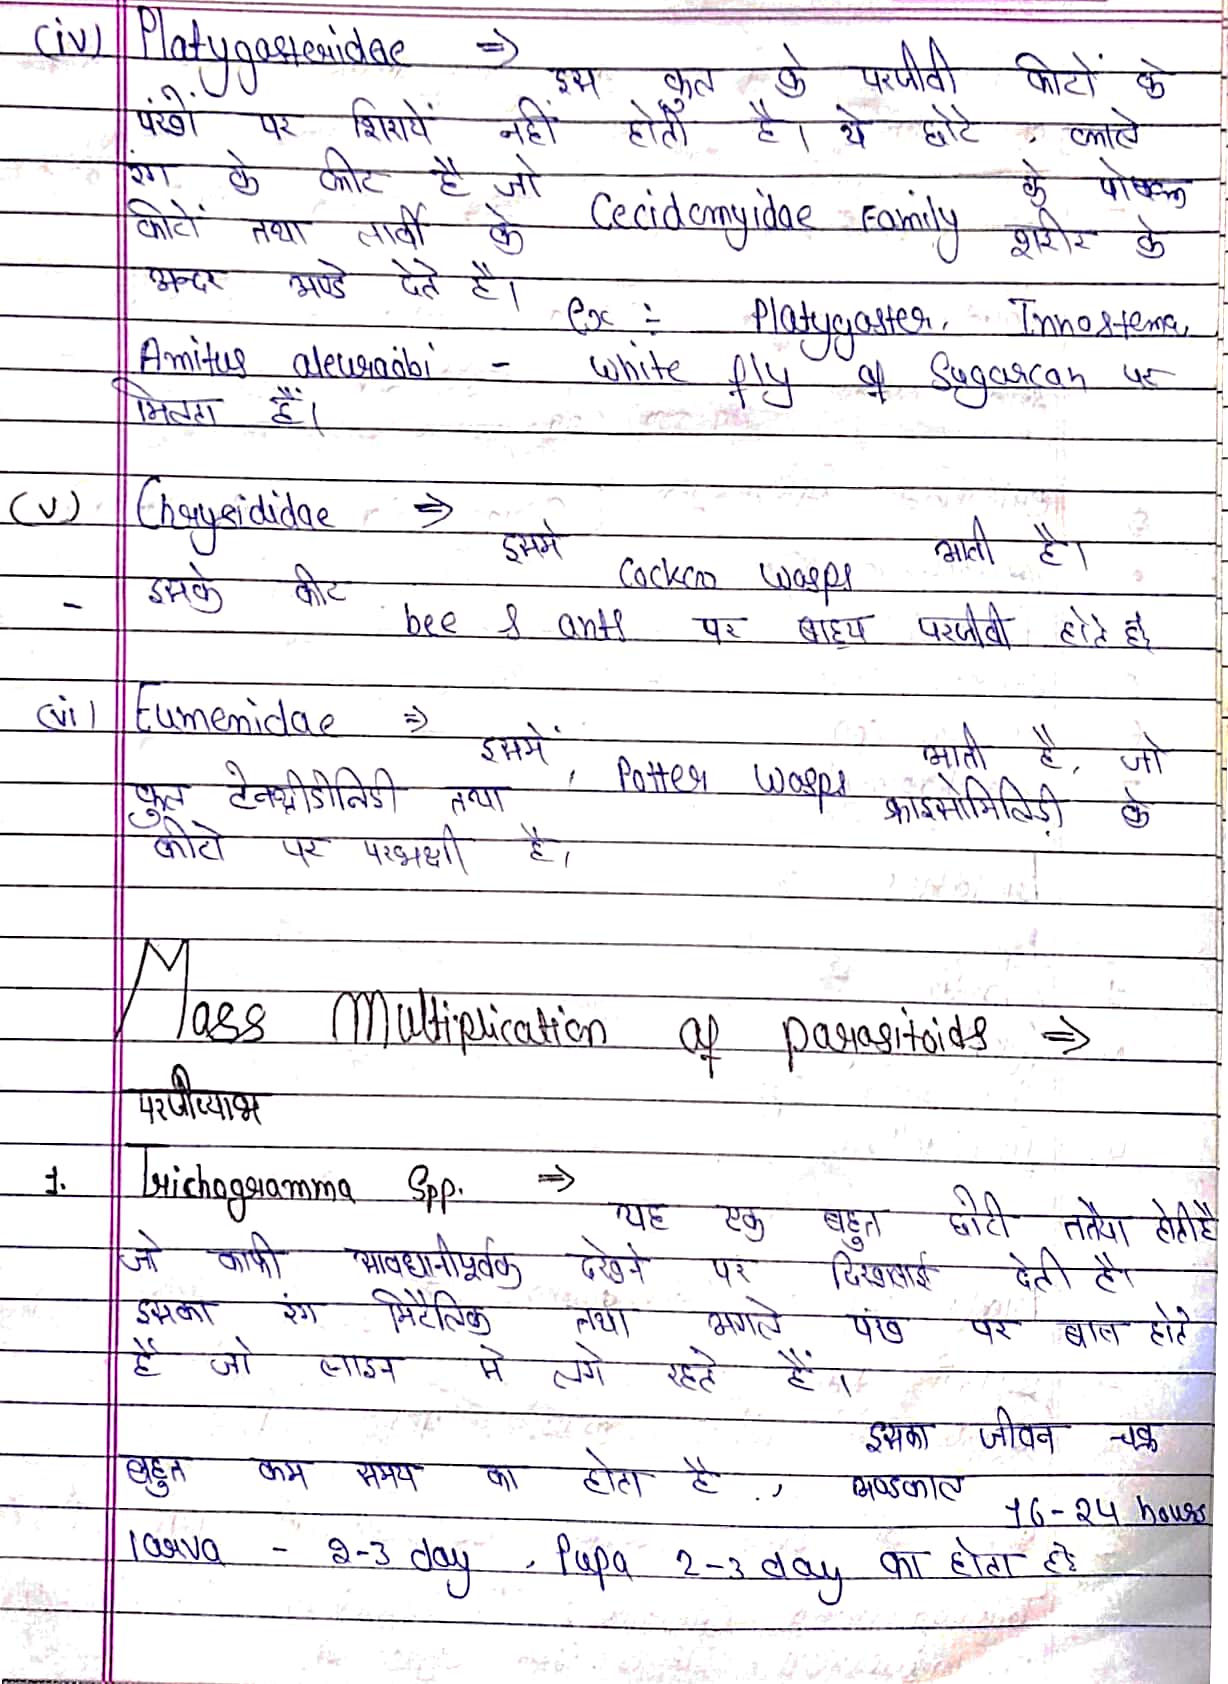 (iv) Platygasteridae ⇒ इस कुल के परजीवी कीटों के
पंखों पर शिरायें नहीं होती है। ये छोटे, काले
रंग के कीट है जो Cecidomyidae Family के पोषक
कीटों तथा लार्वा के शरीर के
अन्दर अण्डे देते है।
Ex :- Platygaster, Innostema,
Amitus aleuroibi - White fly of Sugarcan पर
मिलता हैं।
(v) Chrysididae ⇒ इसमे Cockoo Wasps आती है।
- इसके कीट bee & ants पर बाहय परजीवी होते है
(vi) Eumenidae ⇒ इसमें, Potter Wasps आती है, जो
कुल टेनथ्रीडीनिडी तथा क्राइसोमिलिडी के
कीटो पर परभक्षी है।
Mass Multiplication of parasitoids ⇒
परजीव्याभ
1. Trichogramma Spp. ⇒ यह एक बहुत छोटी ततैया होती है
जो काफी सावधानीपूर्वक देखने पर दिखलाई देती है।
इसका रंग मिटैलिक तथा अगले पंख पर बाल होते
हैं जो लाइन मे लगे रहते हैं।
इसका जीवन चक्र
बहुत कम समय का होता है, अण्डकाल 16-24 hours
larva - 2-3 day, Pupa 2-3 day का होता है